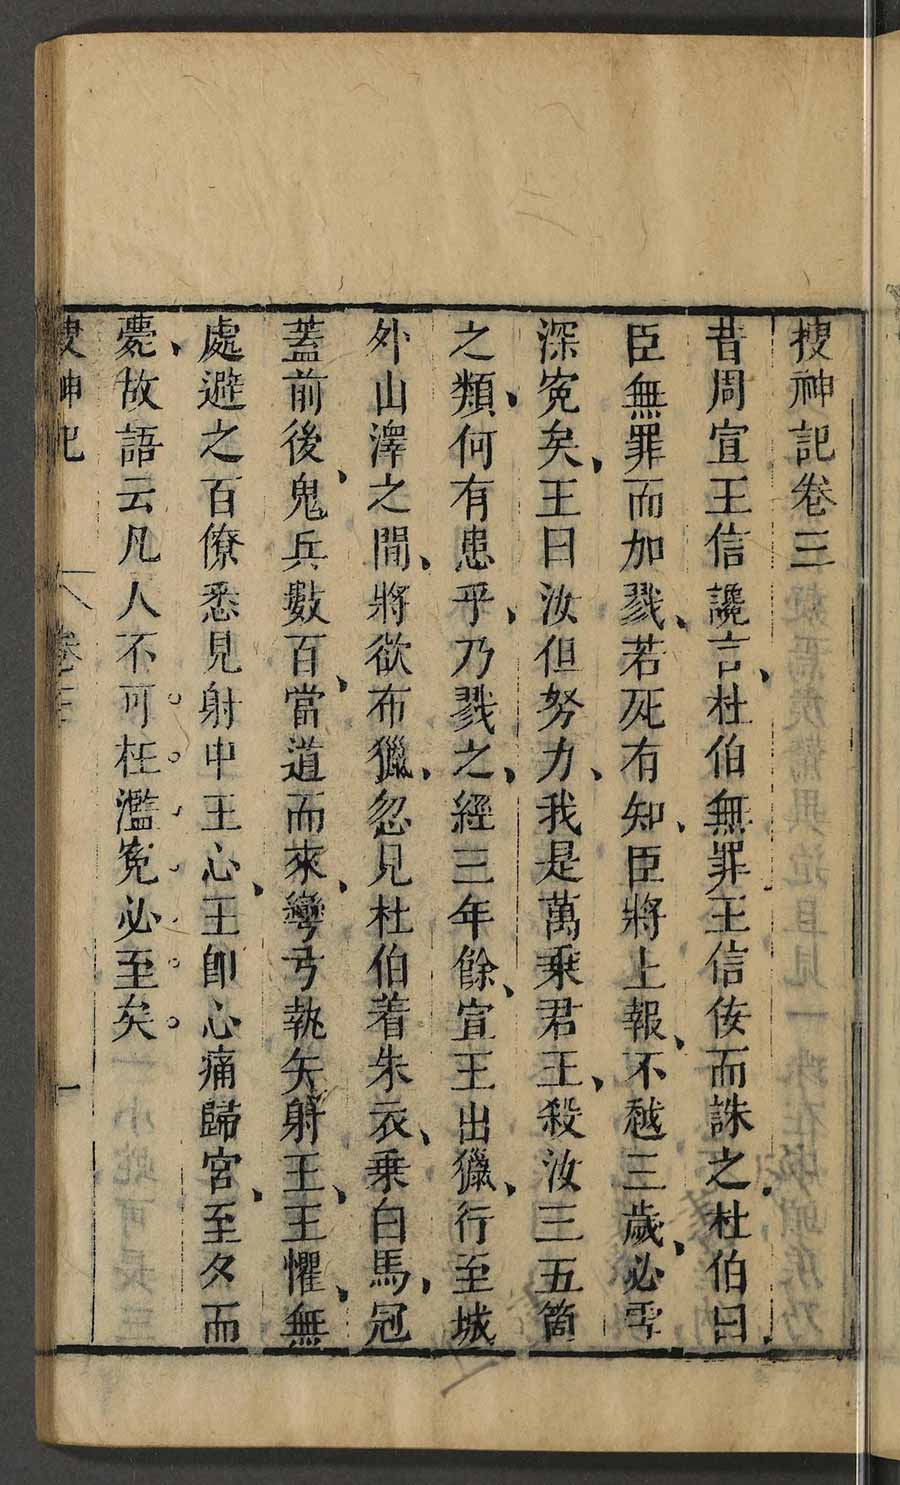 搜神記卷三
昔周宣王信讒言杜伯無罪王信佞而誅之杜伯曰
臣無罪而加戮若死有知臣將上報不越三歲必雪
深寃矣王曰汝但努力我是萬乗君王殺汝三五箇
之類何有患乎乃戮之經三年餘宣王出獵行至城
外山澤之間將欲布獵忽見杜伯着朱衣乗白馬冠
蓋前後鬼兵數百當道而來彎弓執矢射王王懼無
處避之百僚悉見射中王心王卽心痛歸宮至夕而
薨故語云凡人不可枉濫寃必至矣
搜神記 卷三 一